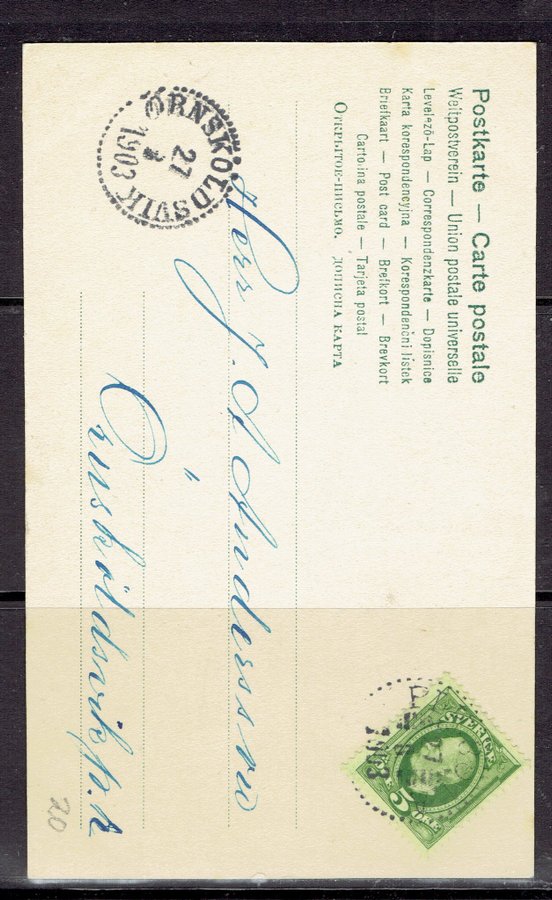 Postkarte — Carte postale
Weltpostverein — Union postale universelle
Levelező-Lap — Correspondenzkarte — Dopisnice
Karta korespondencyjna — Korespondenční listek
Briefkaart — Post card — Brefkort — Brevkort
Cartolina postale — Tarjeta postal
Открытое-письмо. дописна карта
ÖRNSKÖLDSVIK
27
1903
SVERIGE
5
ÖRE
1903
Herr J. A Andersson
"
Örnsköldsvik p. r
20